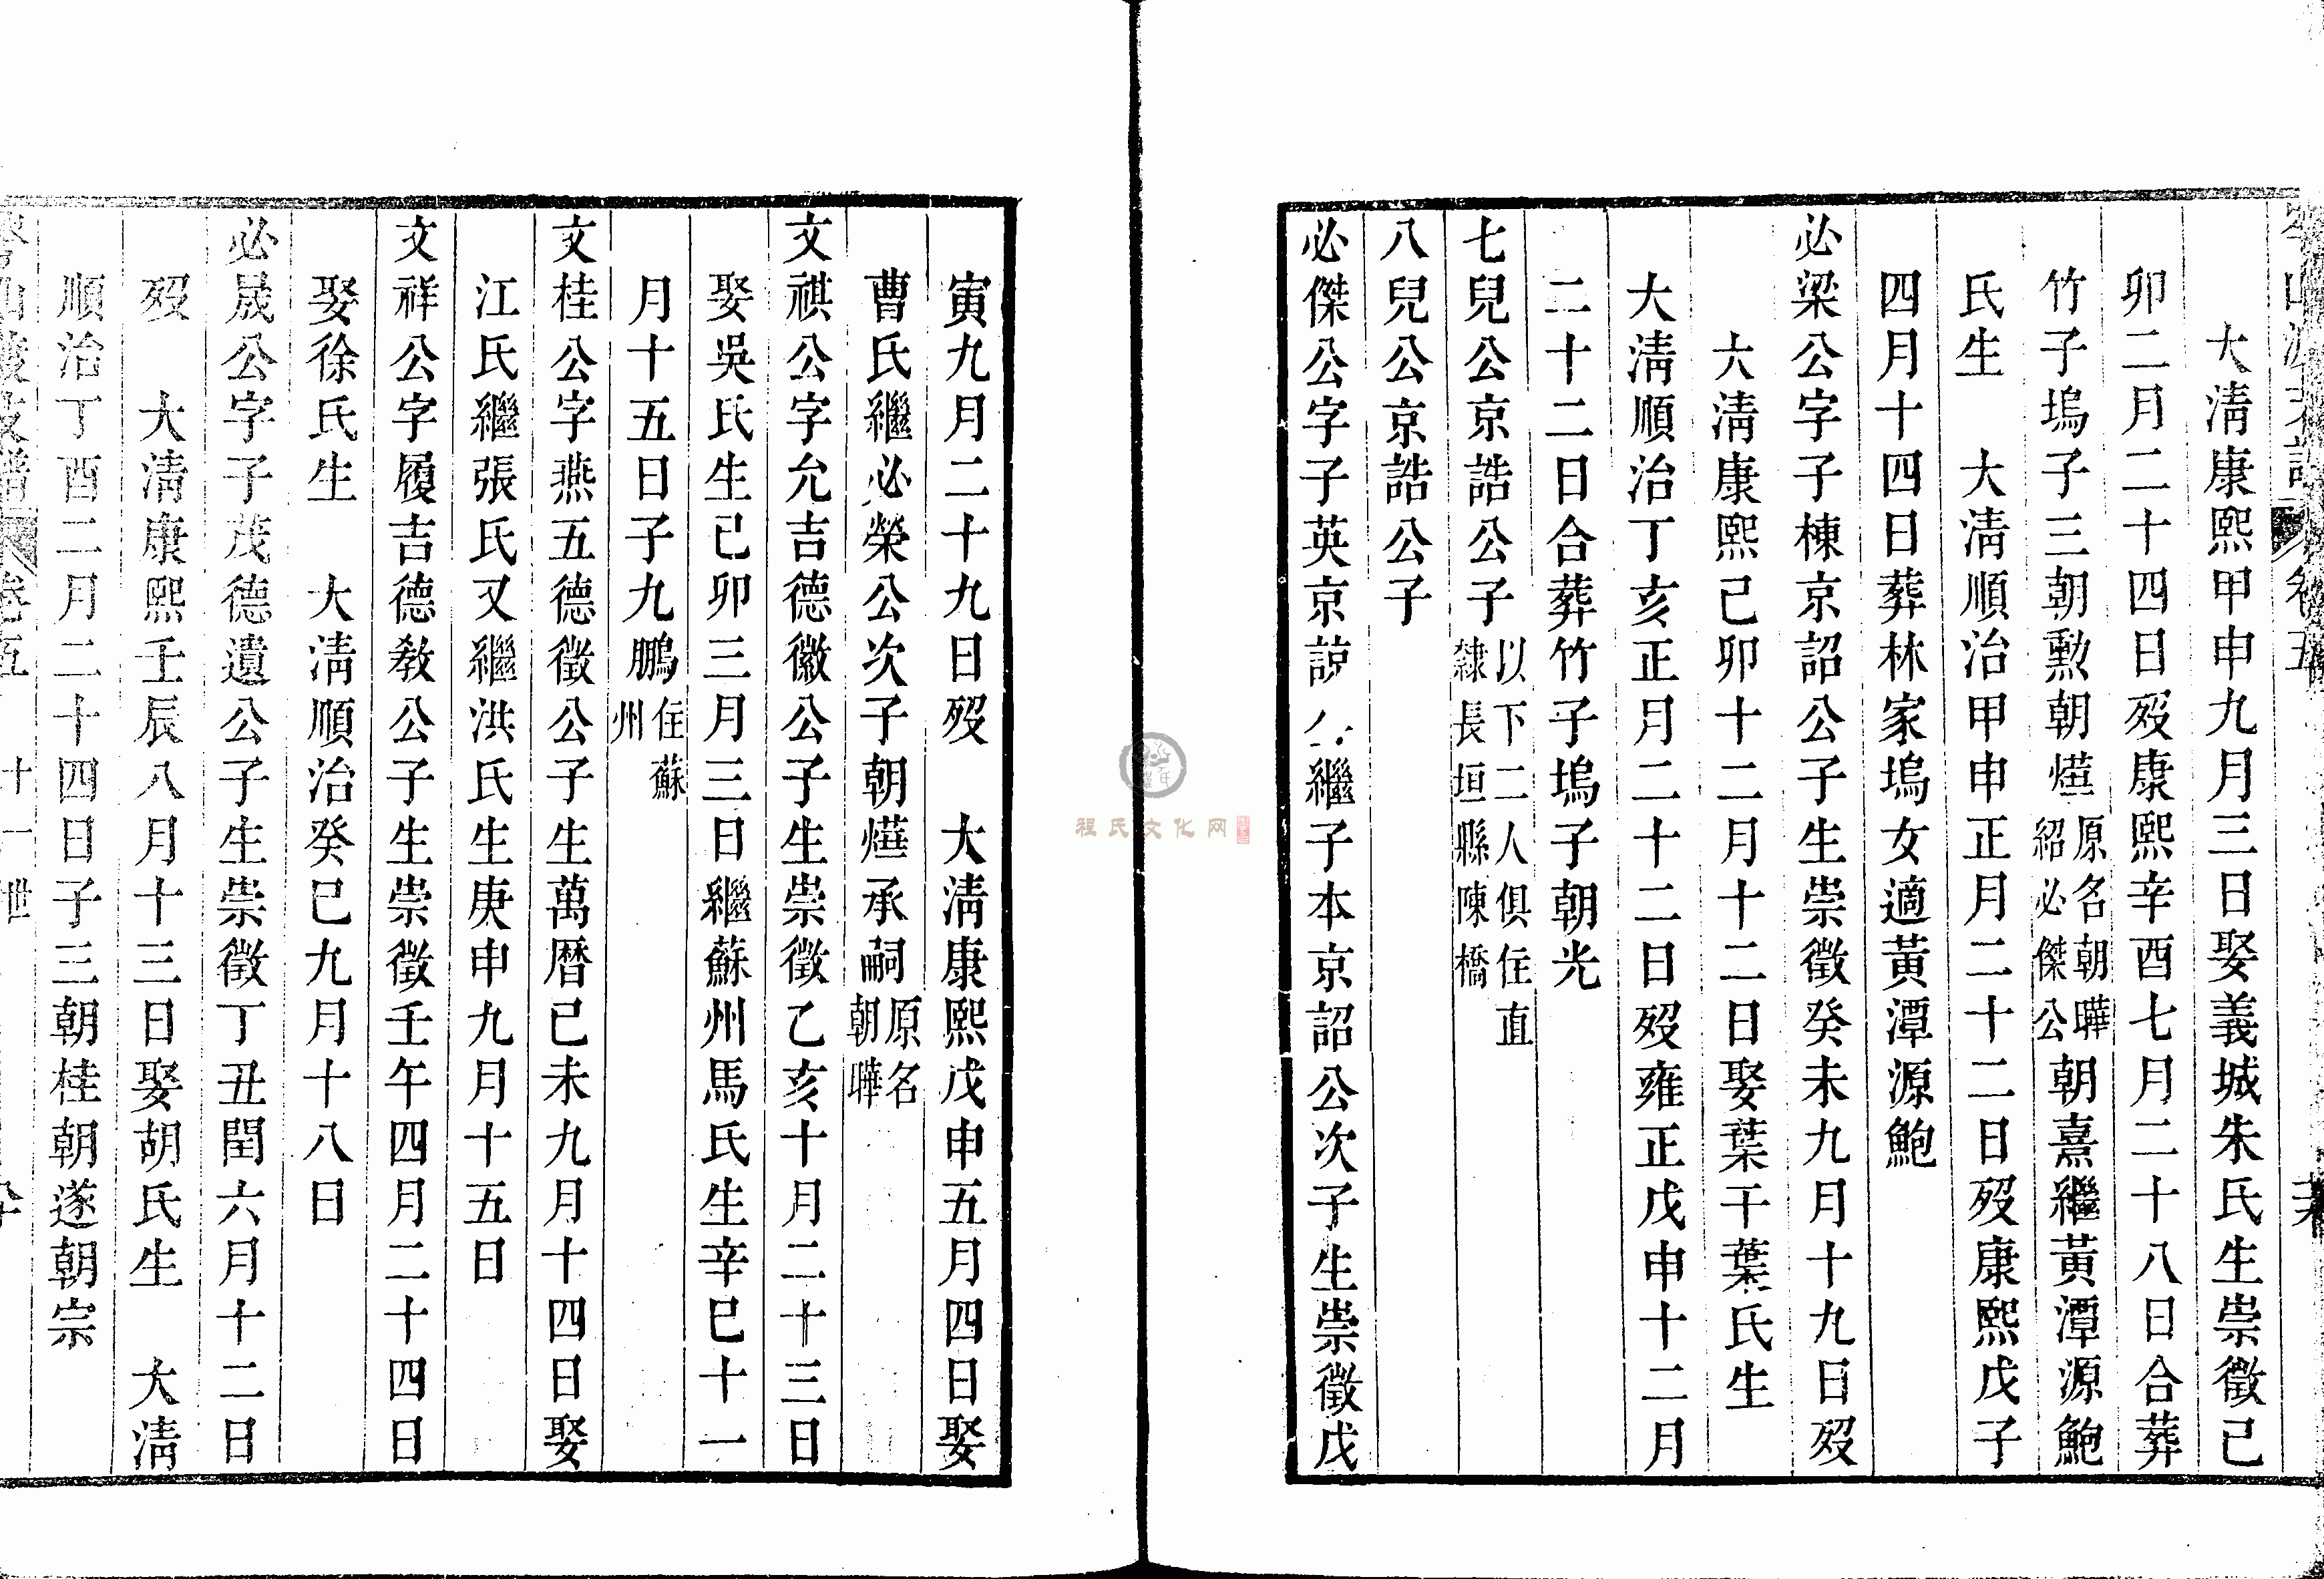 大清康熙甲申九月三日娶義城朱氏生崇徵己
卯二月二十四日歿康熙辛酉七月二十八日合葬
竹子塢子三朝勲朝㷸原名朝曄紹必傑公朝熹繼黃潭源鮑
氏生　大清順治甲申正月二十二日歿康熙戊子
四月十四日葬林家塢女適黃潭源鮑
必梁公字子棟京詔公子生崇徵癸未九月十九日歿
大清康熙己卯十二月十二日娶葉干葉氏生
大清順治丁亥正月二十二日歿雍正戊申十二月
二十二日合葬竹子塢子朝光
七兒公京誥公子以下二人俱住直隸長垣縣陳橋
八兒公京誥公子
必傑公字子英京諒繼子本京詔公次子生崇徵戊
寅九月二十九日歿　大清康熙戊申五月四日娶
曹氏繼必榮公次子朝㷸承嗣原名朝曄
文祺公字允吉德徽公子生崇徵乙亥十月二十三日
娶吳氏生己卯三月三日繼蘇州馬氏生辛巳十一
月十五日子九鵬住蘇州
文桂公字燕五德徵公子生萬曆己未九月十四日娶
江氏繼張氏又繼洪氏生庚申九月十五日
文祥公字履吉德教公子生崇徵壬午四月二十四日
娶徐氏生　大清順治癸巳九月十八日
必晟公字子茂德遺公子生崇徵丁丑閏六月十二日
歿　大清康熙壬辰八月十三日娶胡氏生　大清
順治丁酉二月二十四日子三朝桂朝遂朝宗
卷五　十一世
程氏文化网